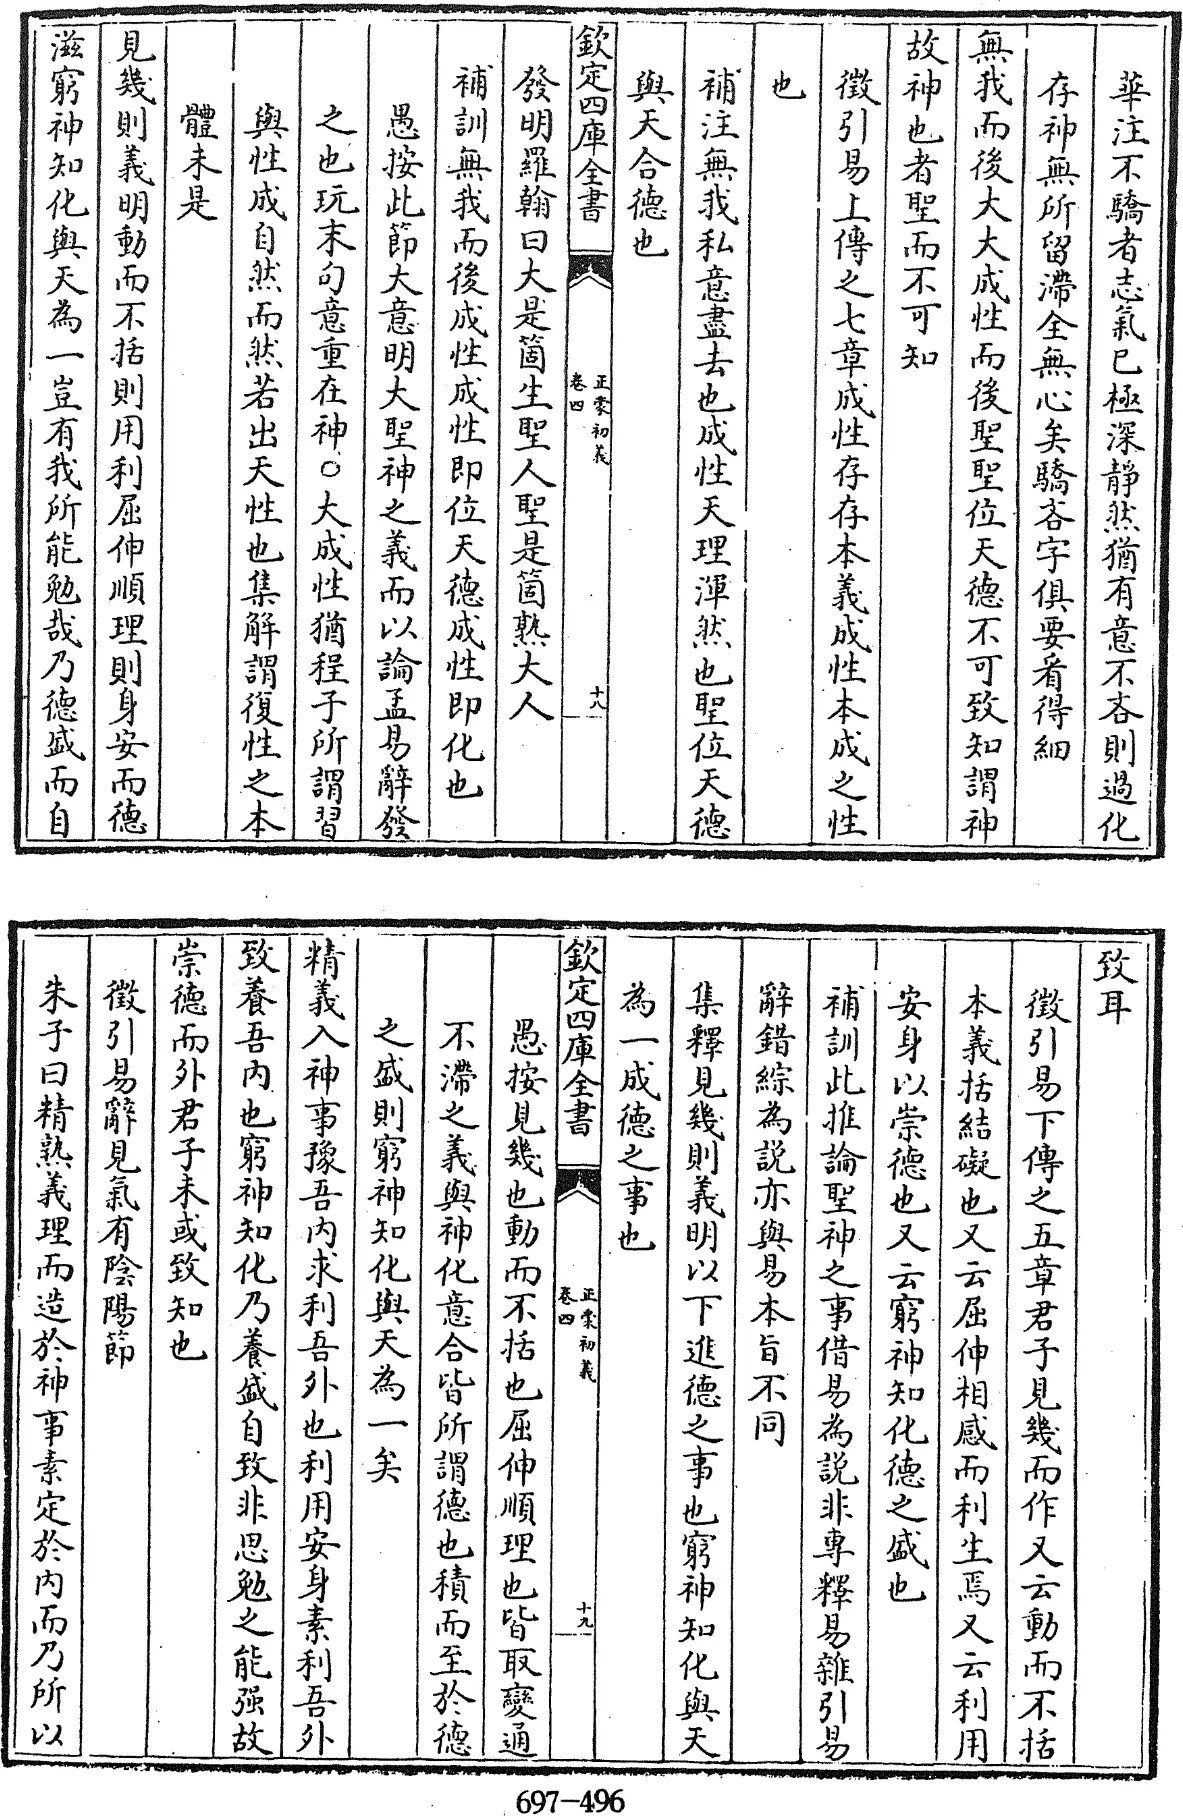 華注不驕者志氣已極深靜然猶有意不吝則過化
存神無所留滯全無心矣驕吝字俱要看得細
無我而後大大成性而後聖聖位天德不可致知謂神
故神也者聖而不可知
徵引易上傳之七章成性存存本義成性本成之性
也
補注無我私意盡去也成性天理渾然也聖位天德
與天合德也
欽定四庫全書
正蒙初義
卷四
十八
發明羅翰曰大是箇生聖人聖是箇熟大人
補訓無我而後成性成性即位天德成性即化也
愚按此節大意明大聖神之義而以論孟易辭發
之也玩末句意重在神○大成性猶程子所謂習
與性成自然而然若出天性也集解謂復性之本
體未是
見幾則義明動而不括則用利屈伸順理則身安而德
滋窮神知化與天為一豈有我所能勉哉乃德盛而自
致耳
徵引易下傳之五章君子見幾而作又云動而不括
本義括結礙也又云屈伸相感而利生焉又云利用
安身以崇德也又云窮神知化德之盛也
補訓此推論聖神之事借易為說非專釋易雜引易
辭錯綜為說亦與易本旨不同
集釋見幾則義明以下進德之事也窮神知化與天
為一成德之事也
欽定四庫全書
正蒙初義
卷四
十九
愚按見幾也動而不括也屈伸順理也皆取變通
不滯之義與神化意合皆所謂德也積而至於德
之盛則窮神知化與天為一矣
精義入神事豫吾內求利吾外也利用安身素利吾外
致養吾內也窮神知化乃養盛自致非思勉之能强故
崇德而外君子未或致知也
徵引易辭見氣有陰陽節
朱子曰精熟義理而造於神事素定於內而乃所以
697-496